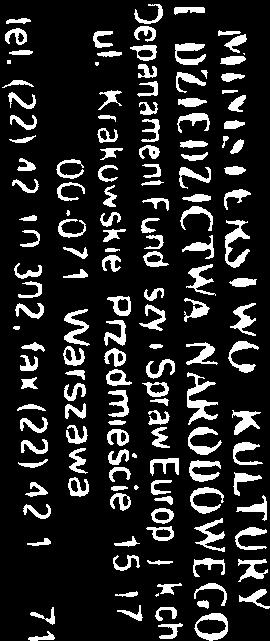 MINISTERSTWO KULTURY
I DZIEDZICTWA NARODOWEGO
Departament Funduszy i Spraw Europejskich
ul. Krakowskie Przedmieście 15 17
00-071 Warszawa
tel. (22) 42 10 302, fax (22) 42 1 71